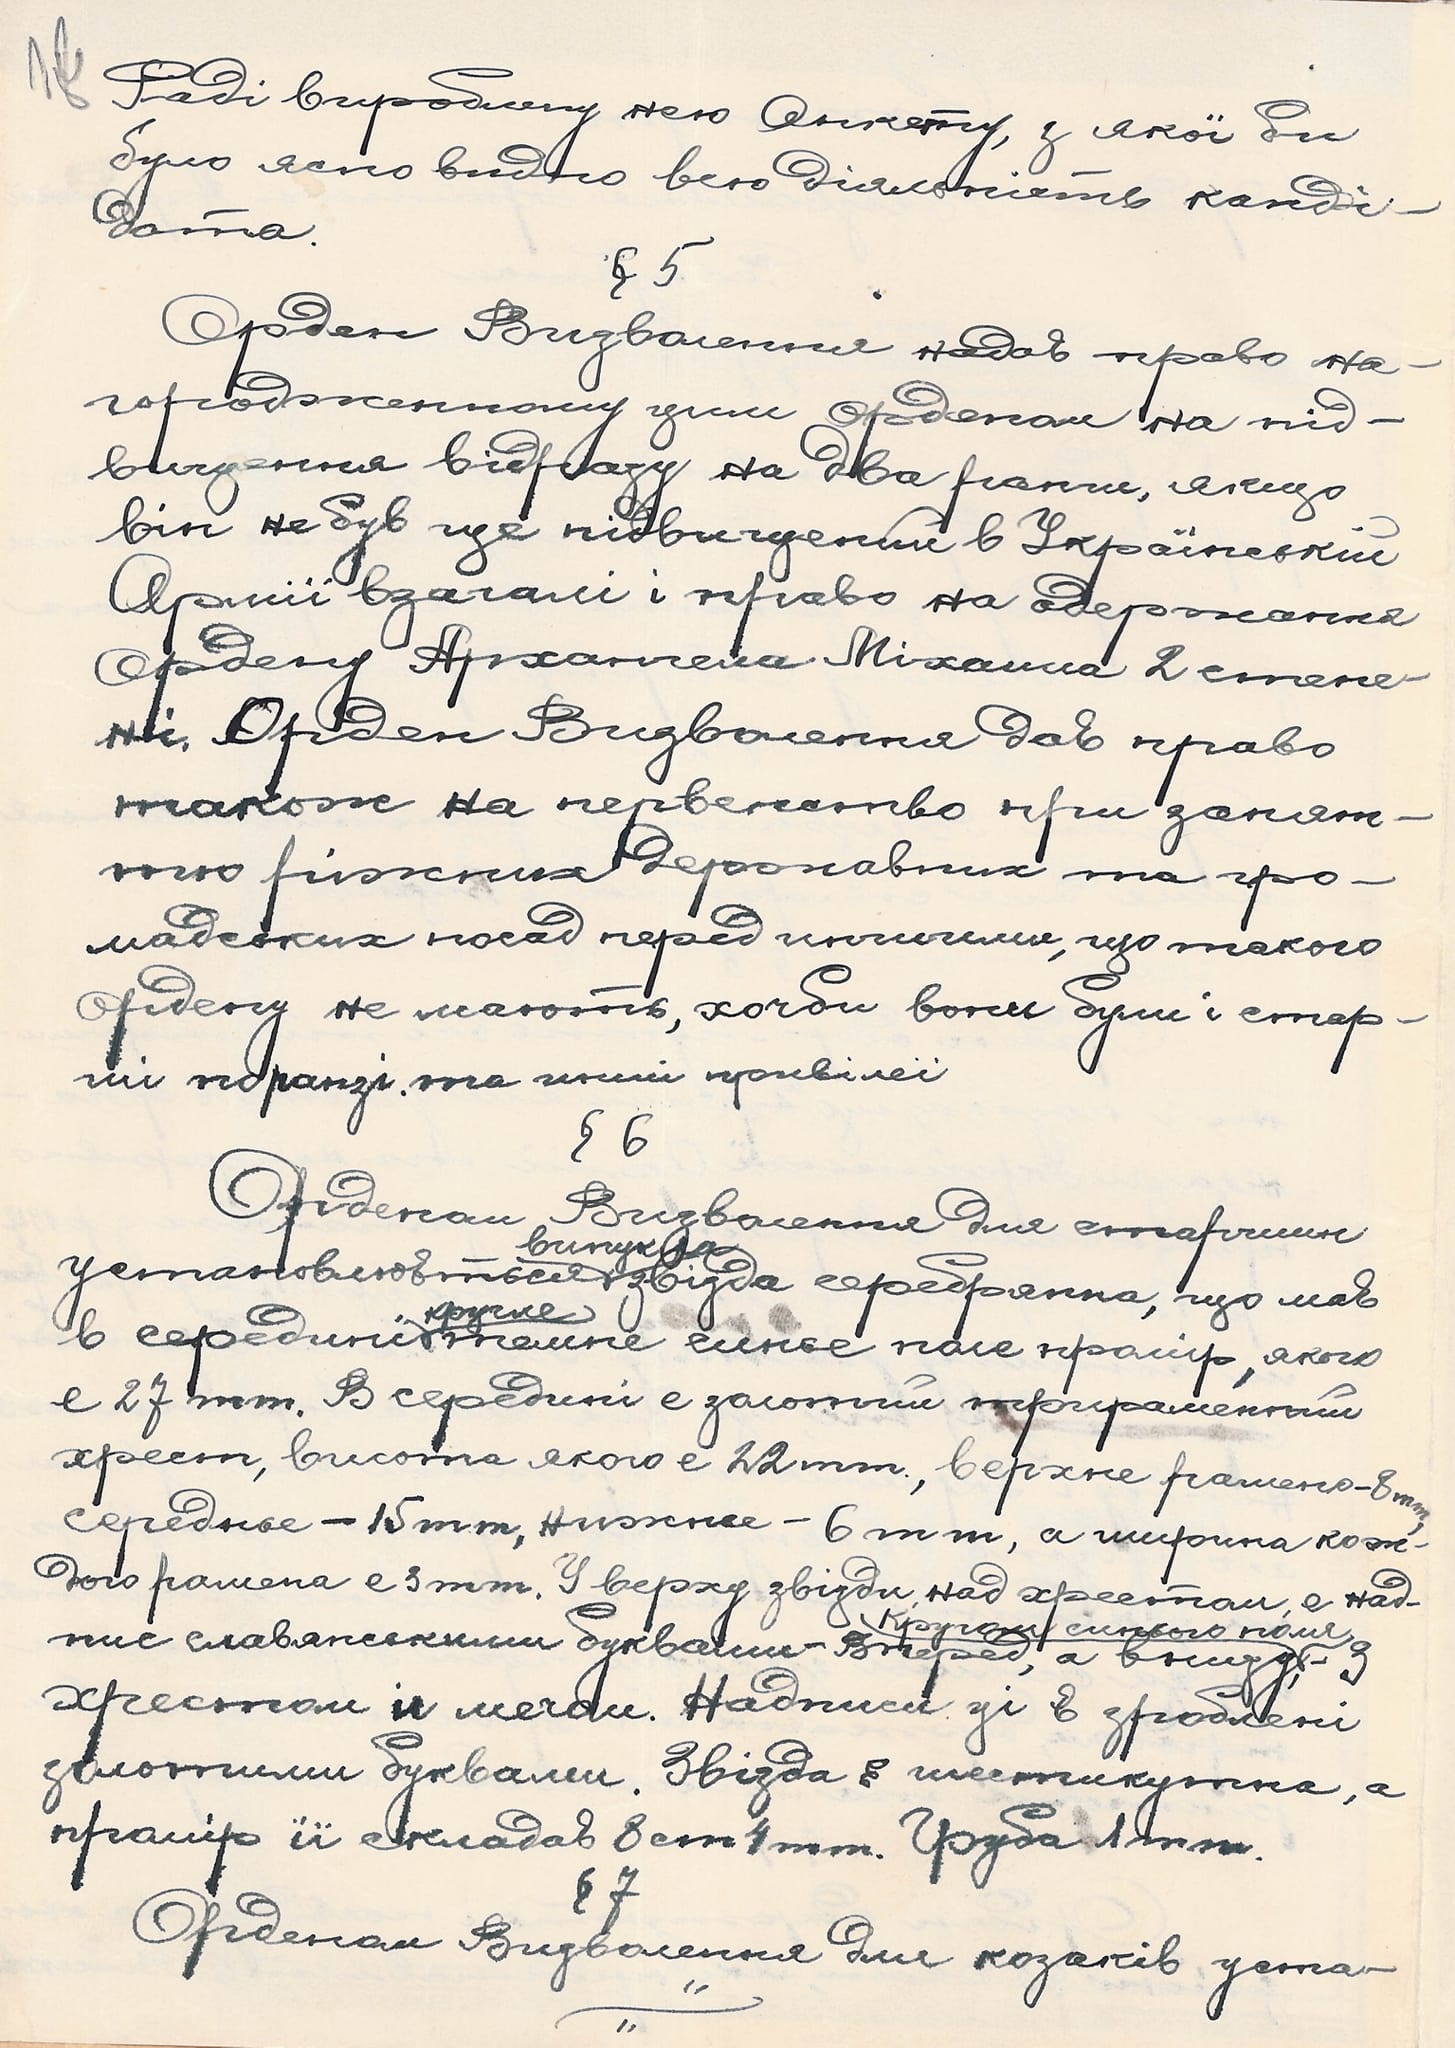 Раді вироблену нею Анкету, з якої би
було ясно видно всю діяльність канді-
дата.
§ 5
Орден Визволення надає право на-
городженному цим Орденом на під-
вищення відразу на два ранги, якщо
він не був ще підвищений в Українській
Армії взагалі і право на одержання
Ордену Архангела Міхаила 2 степе-
ні. Орден Визволення дає право
також на первенство при занят-
тю ріжних державних та гро-
мадських посад перед иншими, що такого
Ордену не мають, хочби вони були і стар-
ші по ранзі. та инші прівілеї
§ 6
Орденом Визволення для старшин
випукла
установлюється звізда серебрянна, що має
кругле
в середині темне синьє поле промір, якого
е 27 mm. В середині е золотий трираменний
хрест, висота якого е 22 mm., верхне рамено-8mm,
середньє - 15 mm, нижнье - 6 mm, а ширина кож-
дого рамена е 3 mm. У верху звізди, над хрестом, е над-
кругом синього поля
пис славянськими буквами - Вперед, а внизу, - З
хрестом и мечом. Надписи ці є зроблені
золотими буквами. Звізда є шестикутна, а
промір її складає 8 cm 4 mm. Груба 1 mm.
§ 7
Орденом Визволення для козаків уста-